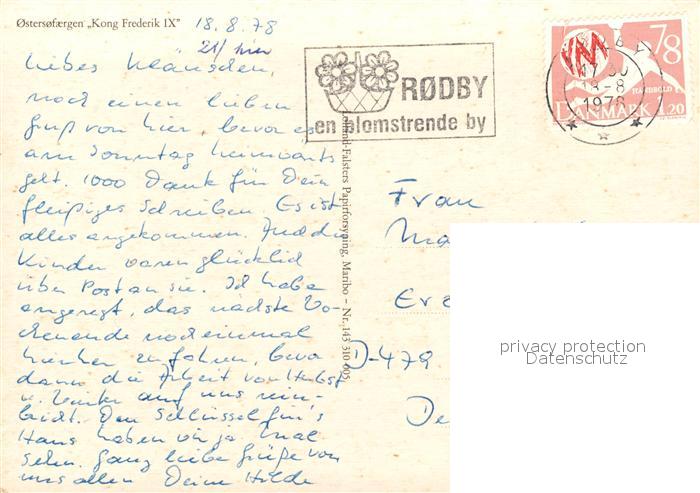 Østersøfærgen „Kong Frederik IX”
18.8.78
21/ hier
Liebes
noch einen lieben
Gruß von hier, bevor es
am Sonntag heimwärts
geht. 1000 Dank für Dein
fleißiges Schreiben. Es ist
alles angekommen. Auch die
Kinder waren glücklich
über Post an sie. Ich habe
angeregt, das nächste Wo-
chenende noch einmal
hierher zu fahren, bevor
dann die Arbeit von Herbst
u. Winter auf uns ein-
Den Schlüssel für's
Haus haben wir ja mal
sehen. Ganz liebe Grüße von
uns allen Deine Hilde
RØDBY
en blomstrende by
RØDBY
17.30
18-8
1978
78
HÅNDBOLD
DANMARK 1.20
Lolland-Falsters Papirforsyning, Maribo – Nr. 143 310 005
Frau
Ma
Er
D-479
De
privacy protection
Datenschutz